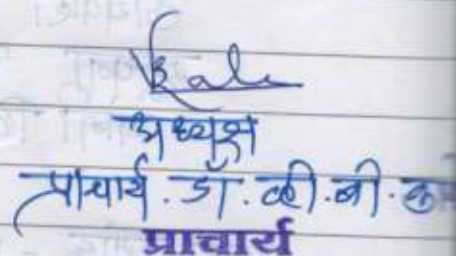 अध्यक्ष
प्राचार्य. डॉ. व्ही. बी.
प्राचार्य